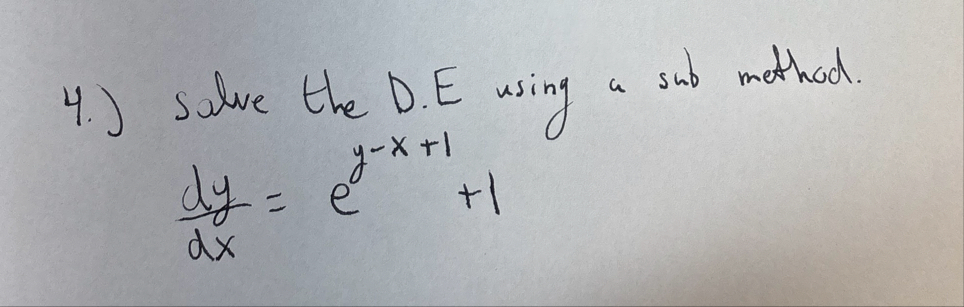 4.) solve the D.E using a sub method.
dy/dx = e^{y-x+1} +1